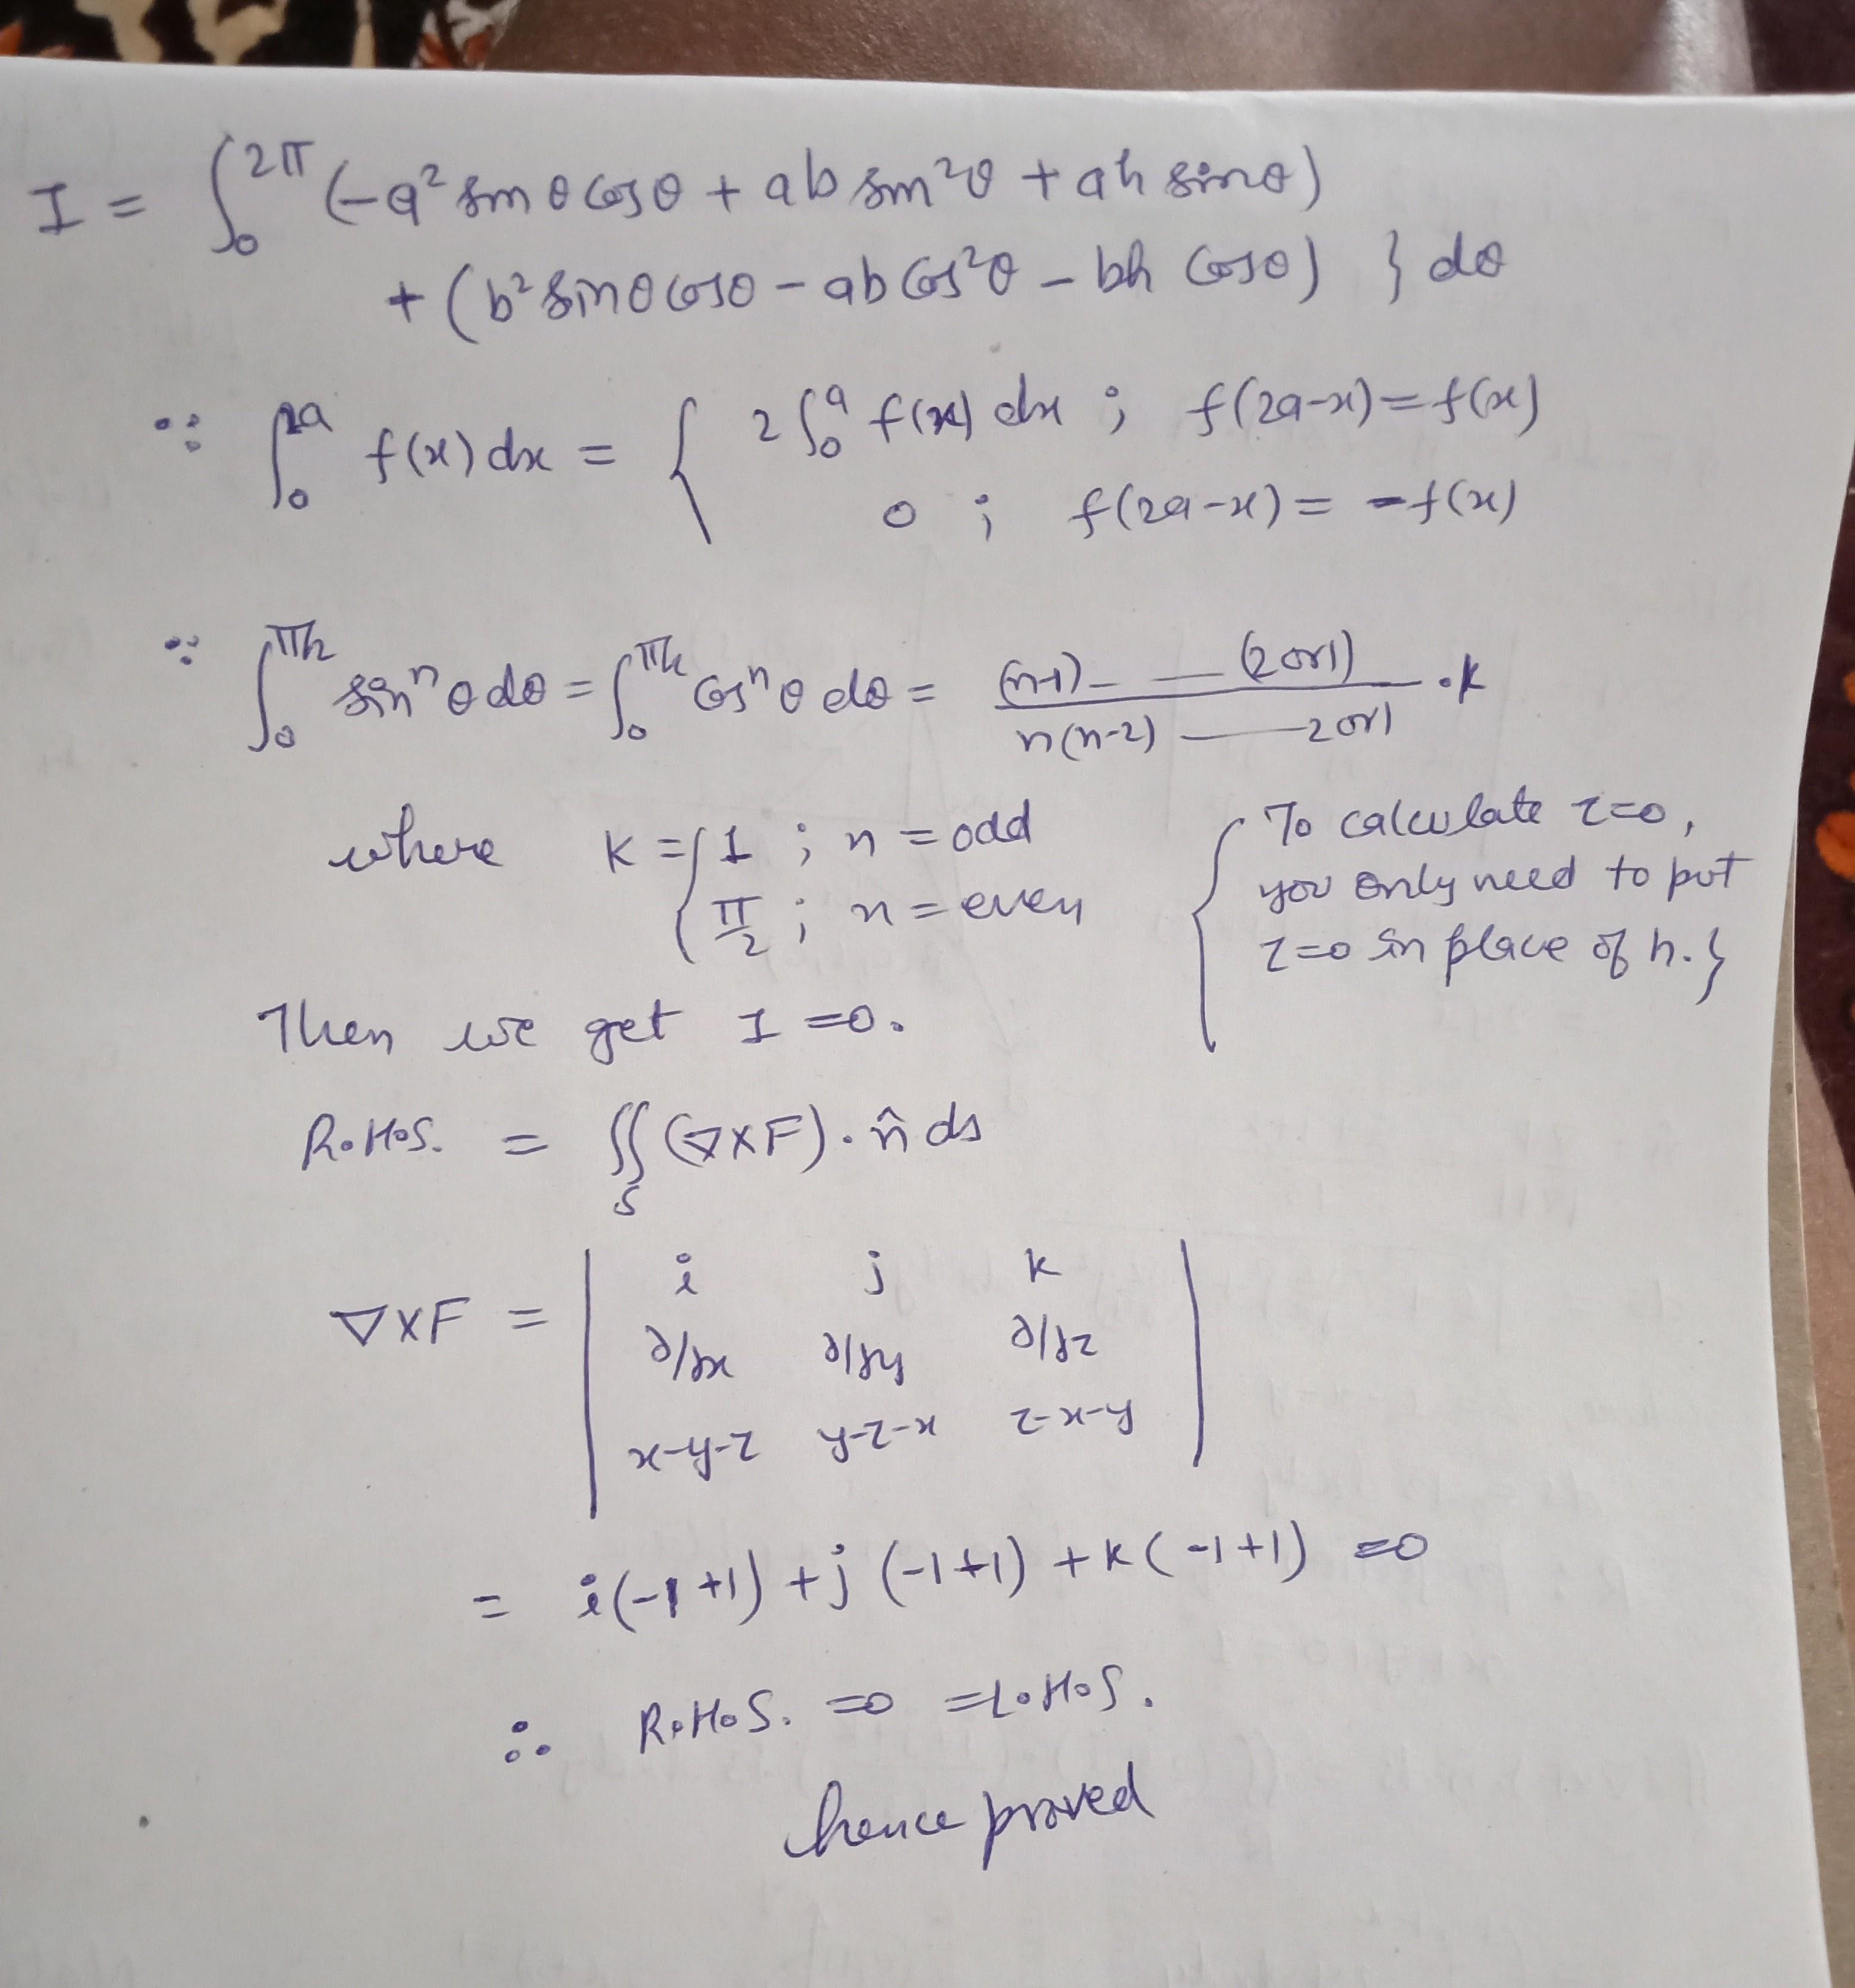 I = ∫₀^2π (-a² sinθ cosθ + ab sin²θ + ah sinθ)
+ (b² sinθ cosθ - ab cos²θ - bh cosθ) } dθ
∵ ∫₀^2a f(x) dx = { 2∫₀^a f(x) dx ; f(2a-x) = f(x)
0 ; f(2a-x) = -f(x)
∵ ∫₀^π/2 sinⁿθ dθ = ∫₀^π/2 cosⁿθ dθ = (n-1) - — (2 or 1) / n(n-2) — 2 or 1 . k
where K = { 1 ; n = odd
π/2 ; n = even
{ To calculate z=0,
you only need to put
z=0 in place of h. }
Then we get I = 0.
R.H.S. = ∬_S (∇×F). n̂ ds
∇×F = | i j k |
∂/∂x ∂/∂y ∂/∂z
x-y-z y-z-x z-x-y
= i(-1+1) + j(-1+1) + k(-1+1) = 0
∴ R.H.S. = 0 = L.H.S.
hence proved